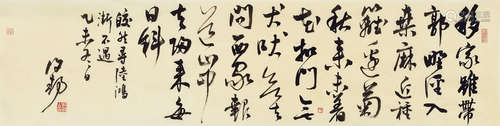 移家雖帶
郭野徑入
桑麻近種
籬邊菊
秋來未著
花扣門無
犬吠欲去
問西家報
道山中
去歸來每
日斜
皎然尋陸鴻
漸不遇
乙未冬